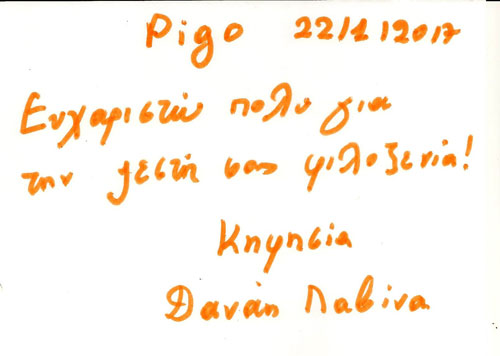 Pigo 22/1/2017
Ευχαριστώ πολυ για
την ζεστή σας φιλοξενία!
Κηφησία
Δανάη